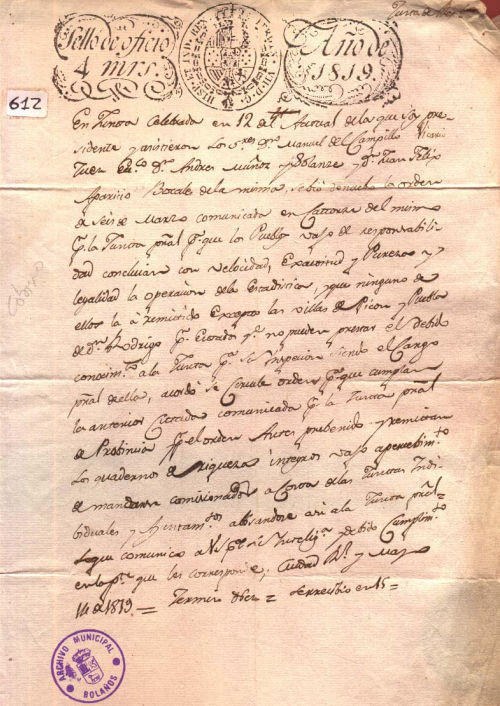 Sello de oficio
4 mrs.
HISP. ET IND. REX
Año de
1819.
612
En Junta Celebrada en 12 del Actual de la que soy pre-
sidente y asistieron los Sres. Dn. Manuel del Campillo Vicario
Juez Eco. Dn. Andres Muñoz y Dn. Juan Felix
Aparicio Bocales de la misma, se bió de nuebo la orden
de Seis de Marzo comunicada en Catorze del mismo
pr. la Junta pral. pa. que los Pueblos vajo de responsabili-
dad concluian con velocidad, Exactitud y Pureza y
legalidad la operacion de la Estadistica, y que ninguno de
ellos la á remitido Excepto las villas de Picon y Puebla
de Dn. Rodrigo pr. Ciotada qe. no pueden prestar el debido
conocimto. a la Junta pa. su Inspecion siendo el Cargo
pral. de ella, acordó se Circule orden pa. que cumplan
la anterior Citada comunicada pr. la Junta pral.
de Probincia pr. el orden Antes prebenido y remitan
los quadernos de riqueza integros vajo apercebimto.
de mandarse comisionados a Costa de las Juntas Indi-
biduales y Ayuntamtos. abisandose asi a la Junta pral.
Lo que comunico a V. pa. su Inteligа. y debido Cumplimto.
en la pte. que les corresponde, Ciudad Rl. y Mayo
14 de 1819. = Fermin Diez = Se rrecibio en 15 =
ARCHIVO MUNICIPAL
BOLAÑOS